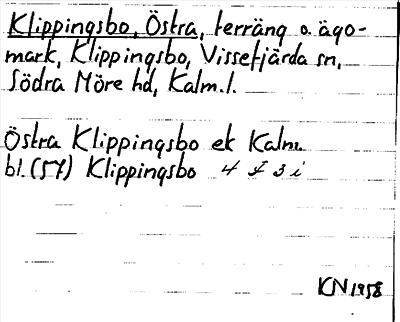 Klippingsbo, Östra, terräng o. ägo-
mark, Klippingsbo, Vissefjärda sn,
Södra Möre hd, Kalm. l.
Östra Klippingsbo ek Kalm.
bl. (57) Klippingsbo 4 F 3 i
KN 1958